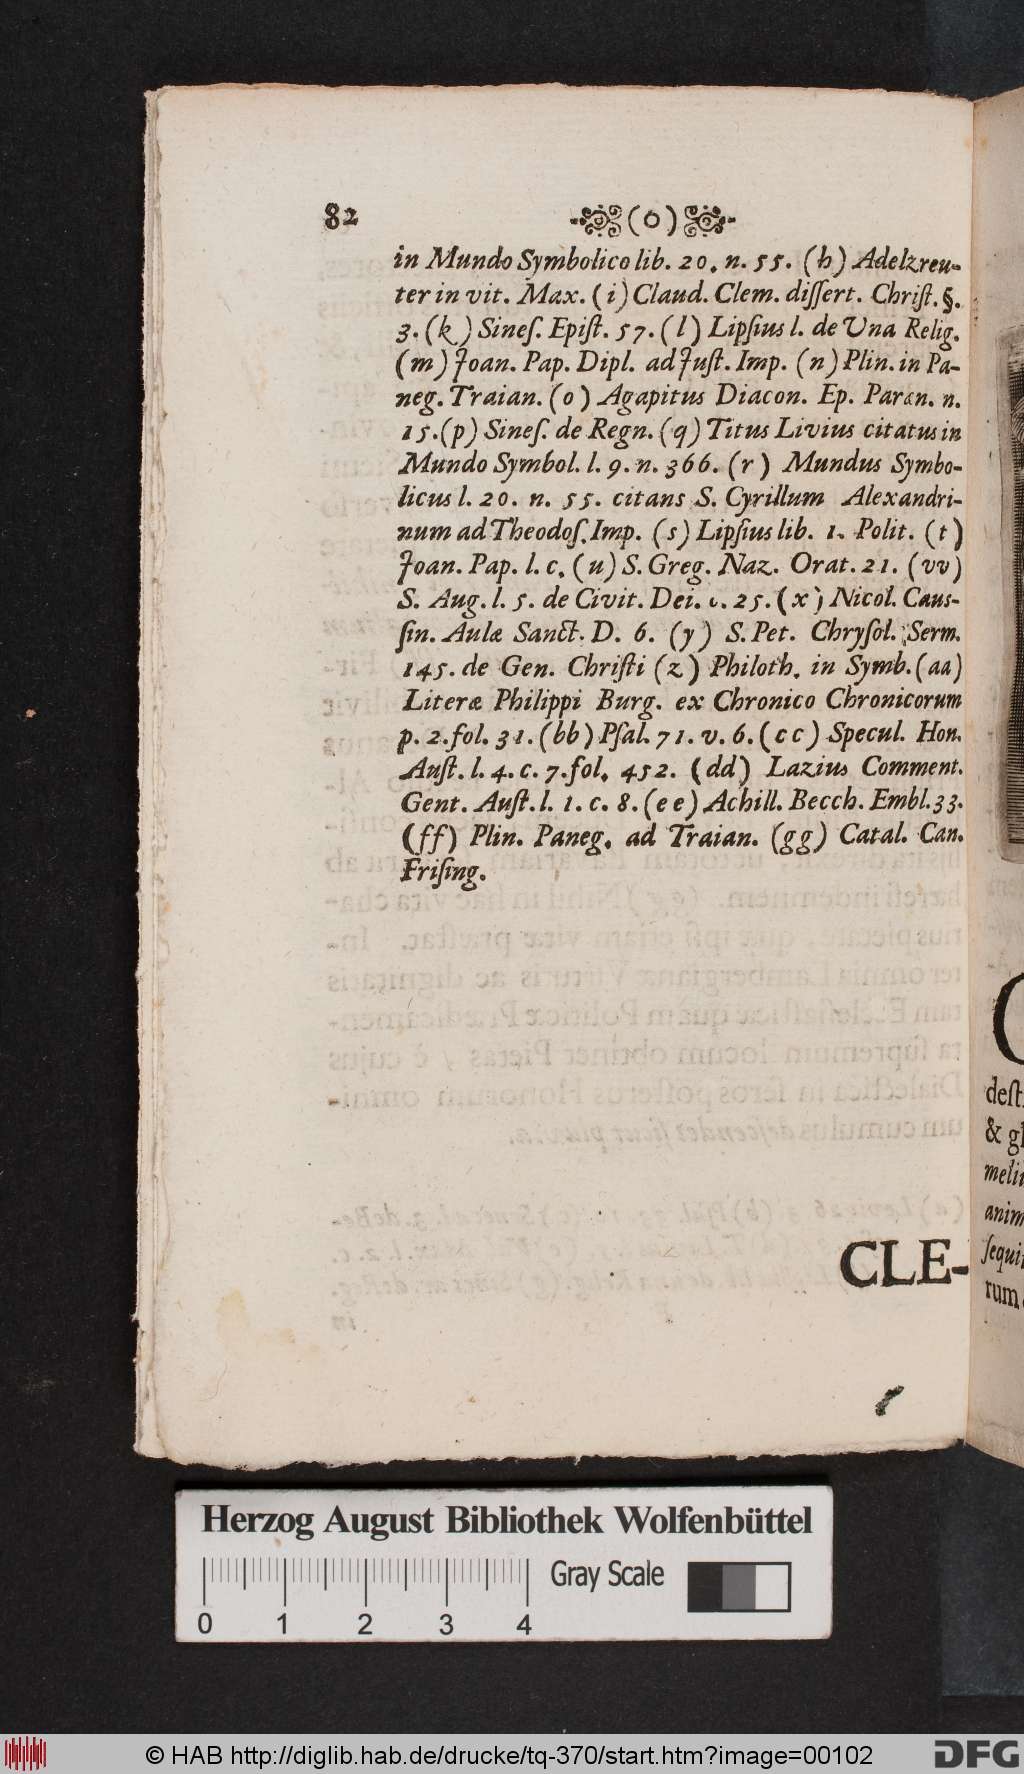 82 (O)
in Mundo Symbolico lib. 20. n. 55. (h) Adelzreu-
ter in vit. Max. (i) Claud. Clem. dissert. Christ. §.
3. (k) Sines. Epist. 57. (l) Lipsius l. de Una Relig.
(m) Joan. Pap. Dipl. ad Just. Imp. (n) Plin. in Pa-
neg. Traian. (o) Agapitus Diacon. Ep. Paræn. n.
15. (p) Sines. de Regn. (q) Titus Livius citatus in
Mundo Symbol. l. 9. n. 366. (r) Mundus Symbo-
licus l. 20. n. 55. citans S. Cyrillum Alexandri-
num ad Theodos. Imp. (s) Lipsius lib. 1. Polit. (t)
Joan. Pap. l. c. (u) S. Greg. Naz. Orat. 21. (vv)
S. Aug. l. 5. de Civit. Dei. c. 25. (x) Nicol. Caus-
sin. Aulæ Sanct. D. 6. (y) S. Pet. Chrysol. Serm.
145. de Gen. Christi (z) Philoth. in Symb. (aa)
Literæ Philippi Burg. ex Chronico Chronicorum
p. 2. fol. 31. (bb) Psal. 71. v. 6. (cc) Specul. Hon.
Aust. l. 4. c. 7. fol. 452. (dd) Lazius Comment.
Gent. Aust. l. 1. c. 8. (ee) Achill. Becch. Embl. 33.
(ff) Plin. Paneg. ad Traian. (gg) Catal. Can.
Frising.
CLE-
& gl
rum
Herzog August Bibliothek Wolfenbüttel
Gray Scale
0 1 2 3 4
© HAB http://diglib.hab.de/drucke/tq-370/start.htm?image=00102
DFG